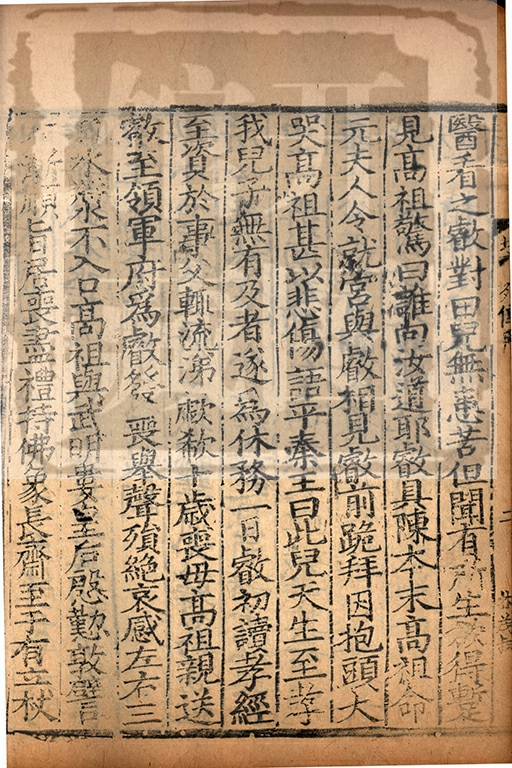 醫看之叡對曰兒無患苦但聞有所生欲得蹔
見高祖驚曰誰向汝道耶叡具陳本末高祖命
元夫人令就宮與叡相見叡前跪拜因抱頭大
哭高祖甚以悲傷語平秦王曰此兒天生至孝
我兒子無有及者遂爲休務一日叡初讀孝經
至資於事父輒流涕歔欷十歲喪母高祖親送
叡至領軍府爲叡發喪舉聲殞絕哀感左右三
日水漿不入口高祖與武明婁皇后慇懃敦譬
方漸順旨居喪盡禮持佛像長齋至于有杖